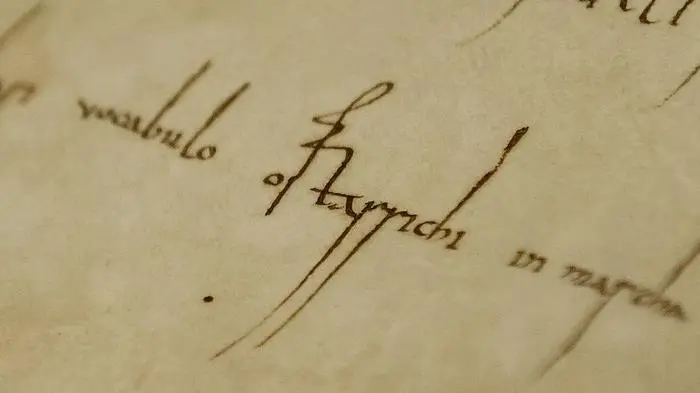 vocabulo ostarrichi in marcha